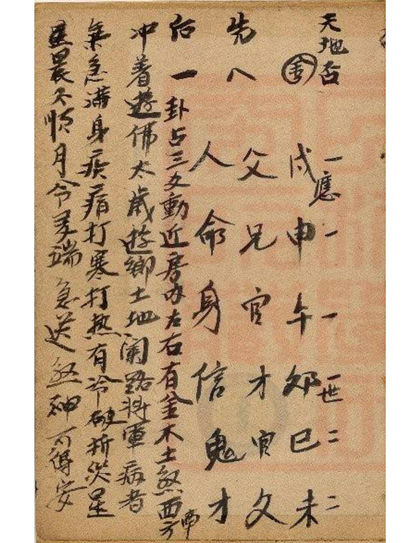 天地否
金 戌一應申一午一卯一世巳二未二
先八 父兄官才官父
人命身信鬼才
后一卦占三爻動近房办左右有金木土煞西方
冲着遊佛太歲遊鄉土地闌路将軍病者
氣急滿身疾痛打寒打热有冷破折災星
星晨不順月令差端急送煞神可得安